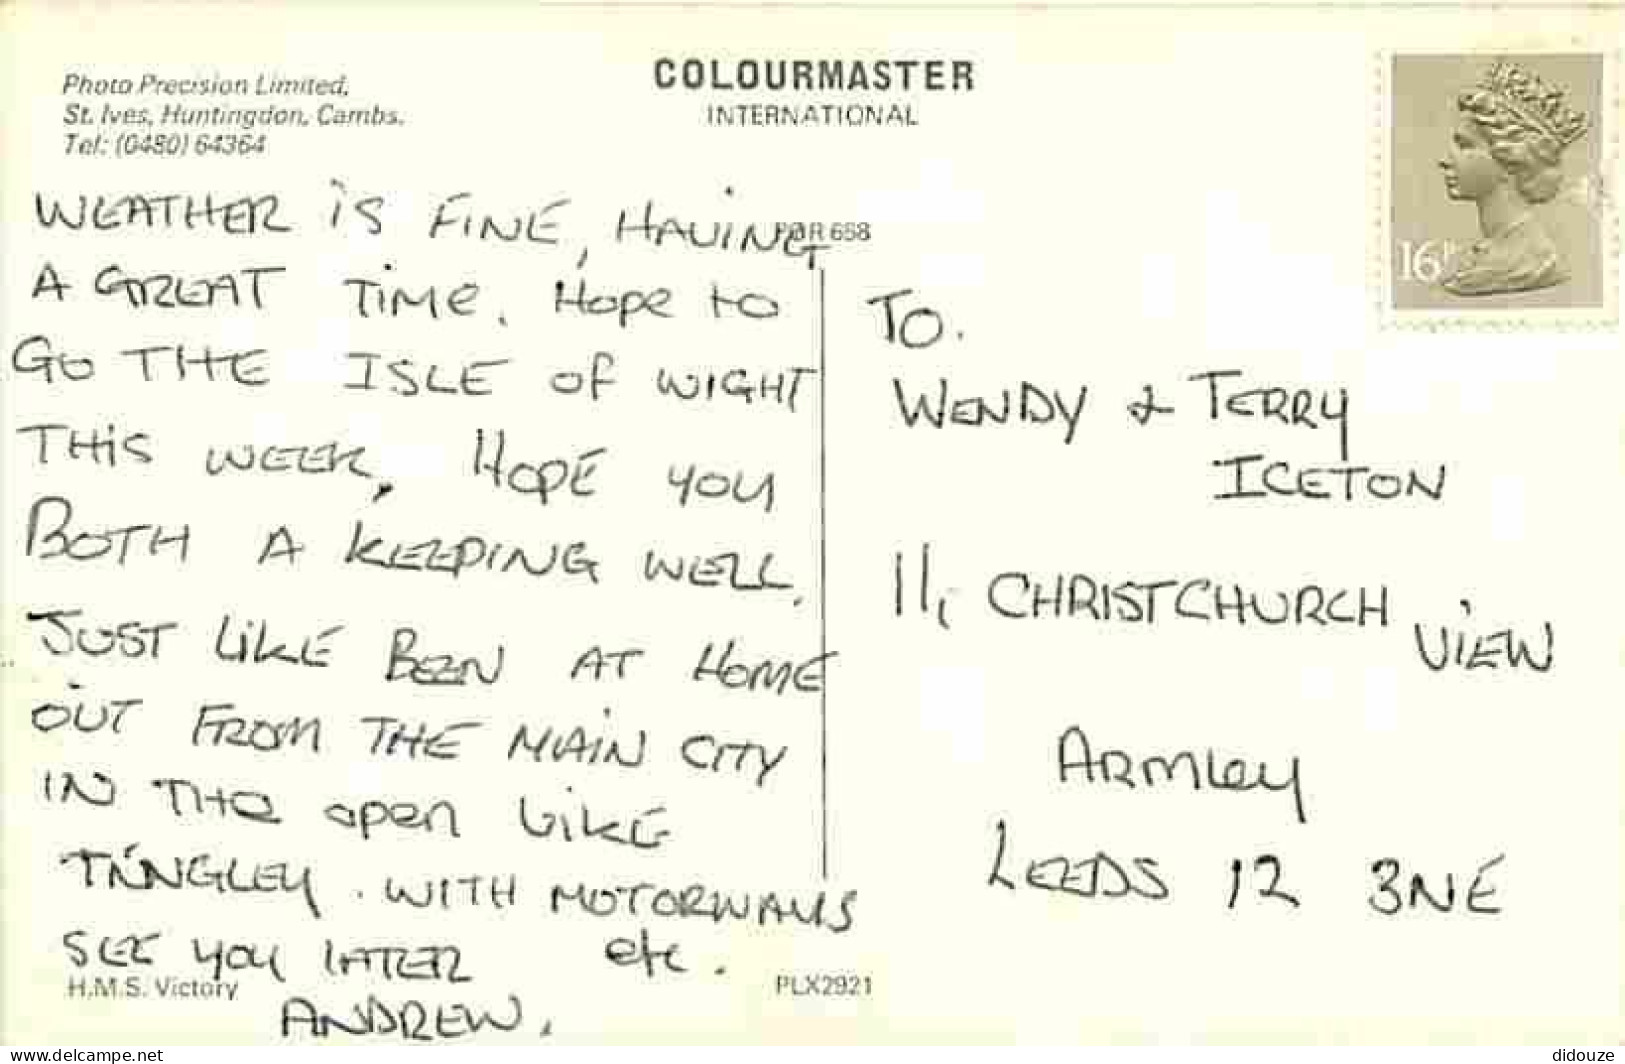 Photo Precision Limited,
St. Ives, Huntingdon, Cambs.
Tel: (0480) 64364
COLOURMASTER
INTERNATIONAL
16P
WEATHER IS FINE, HAVING
A GREAT TIME. Hope to
GO THE ISLE OF WIGHT
THIS WEEK, HOPE YOU
BOTH A KEEPING WELL.
JUST LIKE BEEN AT HOME
OUT FROM THE MAIN CITY
IN THE open LIKE
TINGLEY. WITH MOTORWAYS
SEE YOU LATER etc.
ANDREW.
H.M.S. Victory
PLX2921
TO.
WENDY & TERRY
ICETON
11, CHRISTCHURCH VIEW
ARMLEY
LEEDS 12 3NE
delcampe.net
didouze